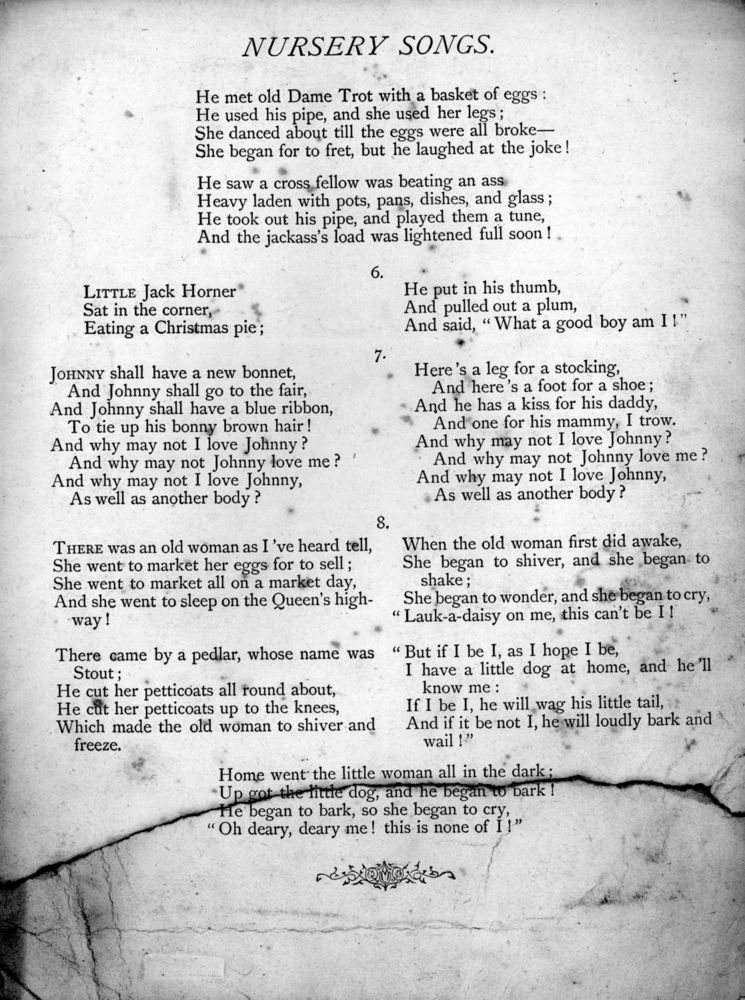 NURSERY SONGS.
He met old Dame Trot with a basket of eggs :
He used his pipe, and she used her legs ;
She danced about till the eggs were all broke—
She began for to fret, but he laughed at the joke !
He saw a cross fellow was beating an ass
Heavy laden with pots, pans, dishes, and glass ;
He took out his pipe, and played them a tune,
And the jackass's load was lightened full soon !
6.
LITTLE Jack Horner
Sat in the corner,
Eating a Christmas pie ;
He put in his thumb,
And pulled out a plum,
And said, “ What a good boy am I ! ”
7.
JOHNNY shall have a new bonnet,
And Johnny shall go to the fair,
And Johnny shall have a blue ribbon,
To tie up his bonny brown hair !
And why may not I love Johnny ?
And why may not Johnny love me ?
And why may not I love Johnny,
As well as another body ?
Here 's a leg for a stocking,
And here 's a foot for a shoe ;
And he has a kiss for his daddy,
And one for his mammy, I trow.
And why may not I love Johnny ?
And why may not Johnny love me ?
And why may not I love Johnny,
As well as another body ?
8.
THERE was an old woman as I 've heard tell,
She went to market her eggs for to sell ;
She went to market all on a market day,
And she went to sleep on the Queen's high-
way !
There came by a pedlar, whose name was
Stout ;
He cut her petticoats all round about,
He cut her petticoats up to the knees,
Which made the old woman to shiver and
freeze.
When the old woman first did awake,
She began to shiver, and she began to
shake ;
She began to wonder, and she began to cry,
“ Lauk-a-daisy on me, this can't be I !
“ But if I be I, as I hope I be,
I have a little dog at home, and he 'll
know me :
If I be I, he will wag his little tail,
And if it be not I, he will loudly bark and
wail ! ”
Home went the little woman all in the dark ;
Up got the little dog, and he began to bark !
He began to bark, so she began to cry,
“ Oh deary, deary me ! this is none of I ! ”